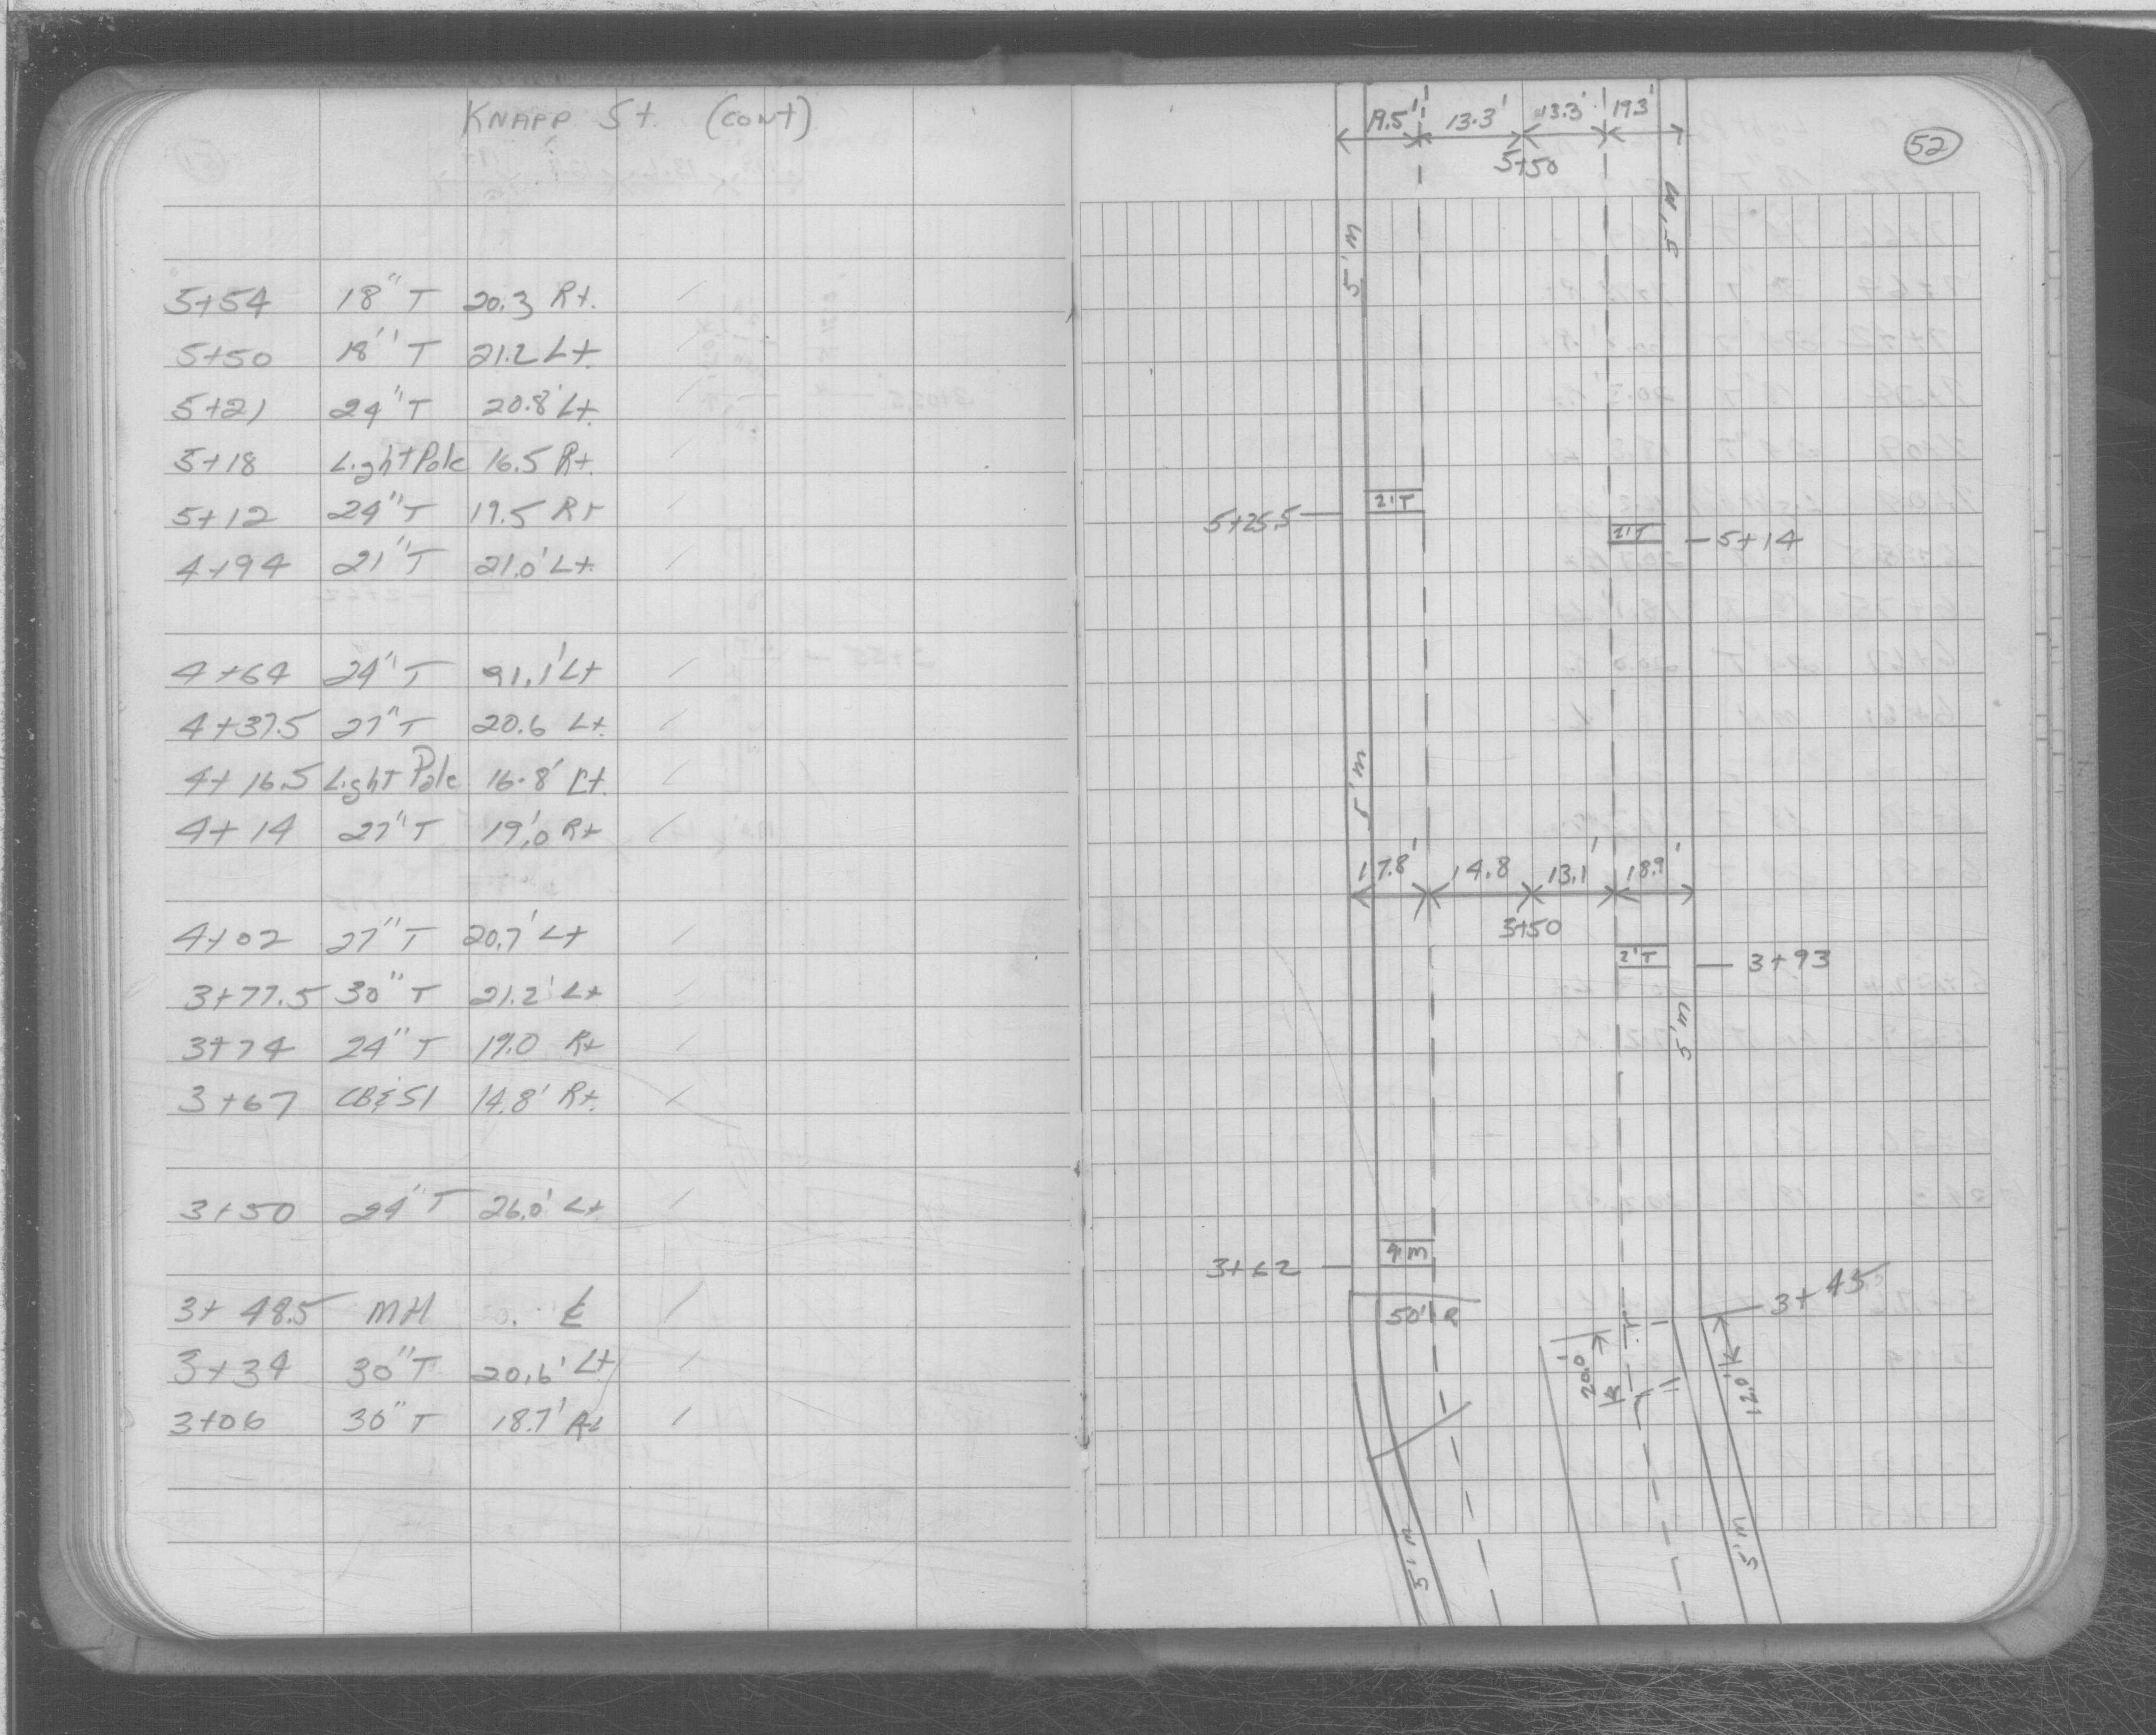 KNAPP St. (cont)
5+54 18" T 20.3 Rt.
5+50 18" T 21.2 Lt.
5+21 24" T 20.8' Lt.
5+18 Light Pole 16.5 Rt.
5+12 24" T 19.5 Rt
4+94 21" T 21.0' Lt.
4+64 24" T 91.1' Lt
4+37.5 27" T 20.6 Lt.
4+16.5 Light Pole 16.8' Lt.
4+14 27" T 19.0 Rt
4+02 27" T 20.7' Lt
3+77.5 30" T 21.2' Lt
3+74 24" T 19.0 Rt
3+67 CB&SI 14.8' Rt.
3+50 24" T 26.0' Lt
3+48.5 MH ℄
3+34 30" T 20.6' Lt
3+06 30" T 18.7' Rt
52
19.5' 13.3' 13.3' 19.3'
5+50
5'm 5'm
5+25.5 2'T
2'T 5+14
5'm
17.8' 14.8 13.1' 18.9'
3+50
2'T 3+93
5'm
3+62 4'm
50' R
3+45
20.0' 12.0'
5'm 5'm